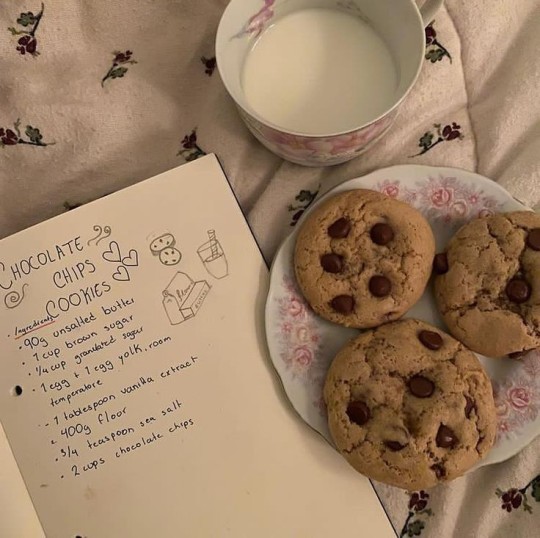 CHOCOLATE
CHIPS
COOKIES
Ingredients
• 90g unsalted butter
• 1 cup brown sugar
• 1/4 cup granulated sugar
• 1 egg + 1 egg yolk, room
temperature
- 1 tablespoon vanilla extract
• 400g flour
• 3/4 teaspoon sea salt
• 2 cups chocolate chips